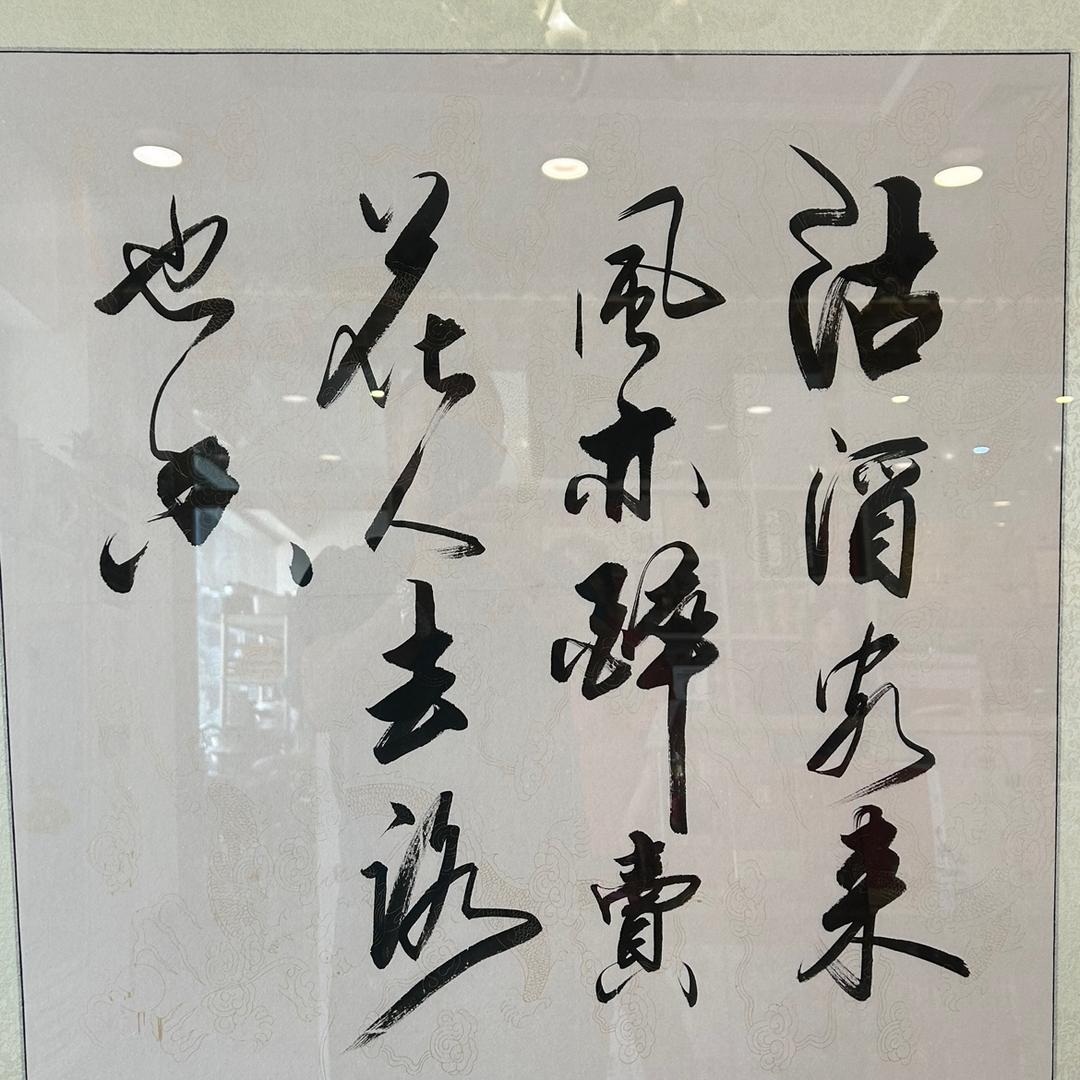 沽酒客来
風亦醉賣
花人去路
也香